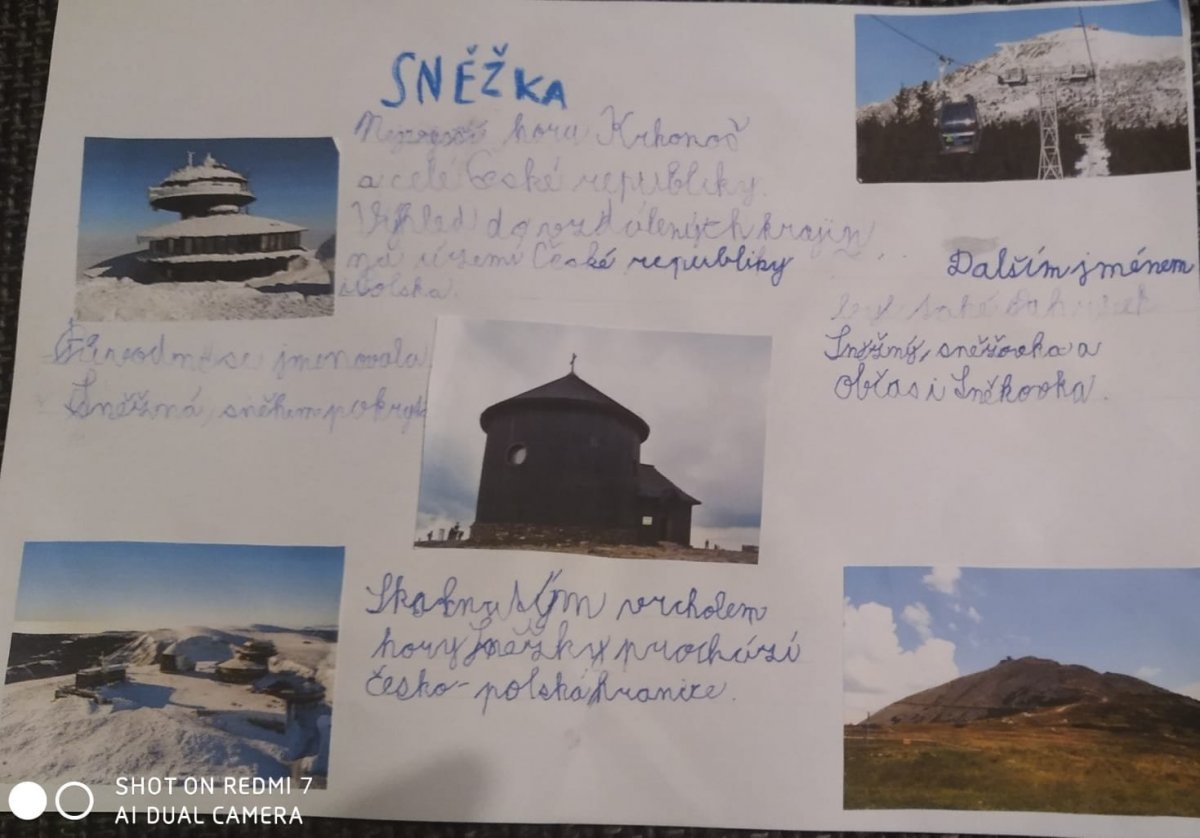 SNĚŽKA
Nejvyšší hora Krkonoš
a celé České republiky.
Výhled do vzdálených krajin
na území České republiky
i Polska.
Původně se jmenovala
Sněžná, sněhem pokryt
Dalším jménem
také
Sněžný, sněžovka a
občas i Sněkovka.
Skalnatým vrcholem
hory Sněžky prochází
česko-polská hranice.
SHOT ON REDMI 7
AI DUAL CAMERA